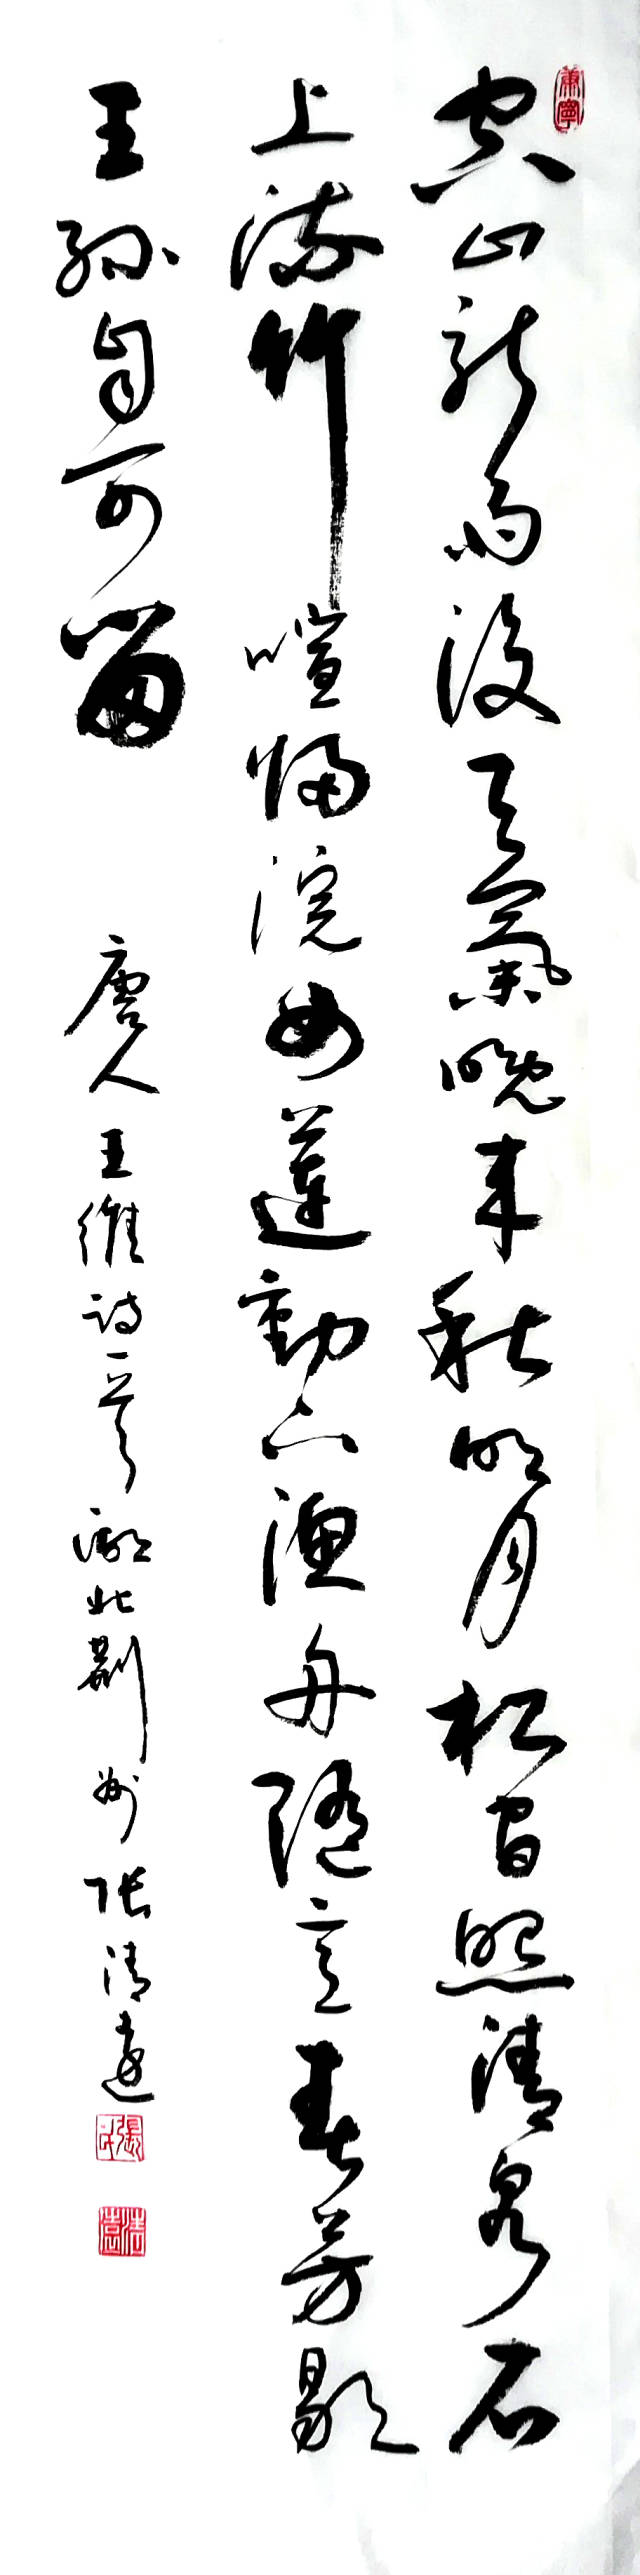 空山新雨後天氣晚来秋明月松間照清泉石
上流竹喧歸浣女蓮動下漁舟隨意春芳歇
王孫自可留
唐人王維詩一首湖北荆州張清遠
康寧